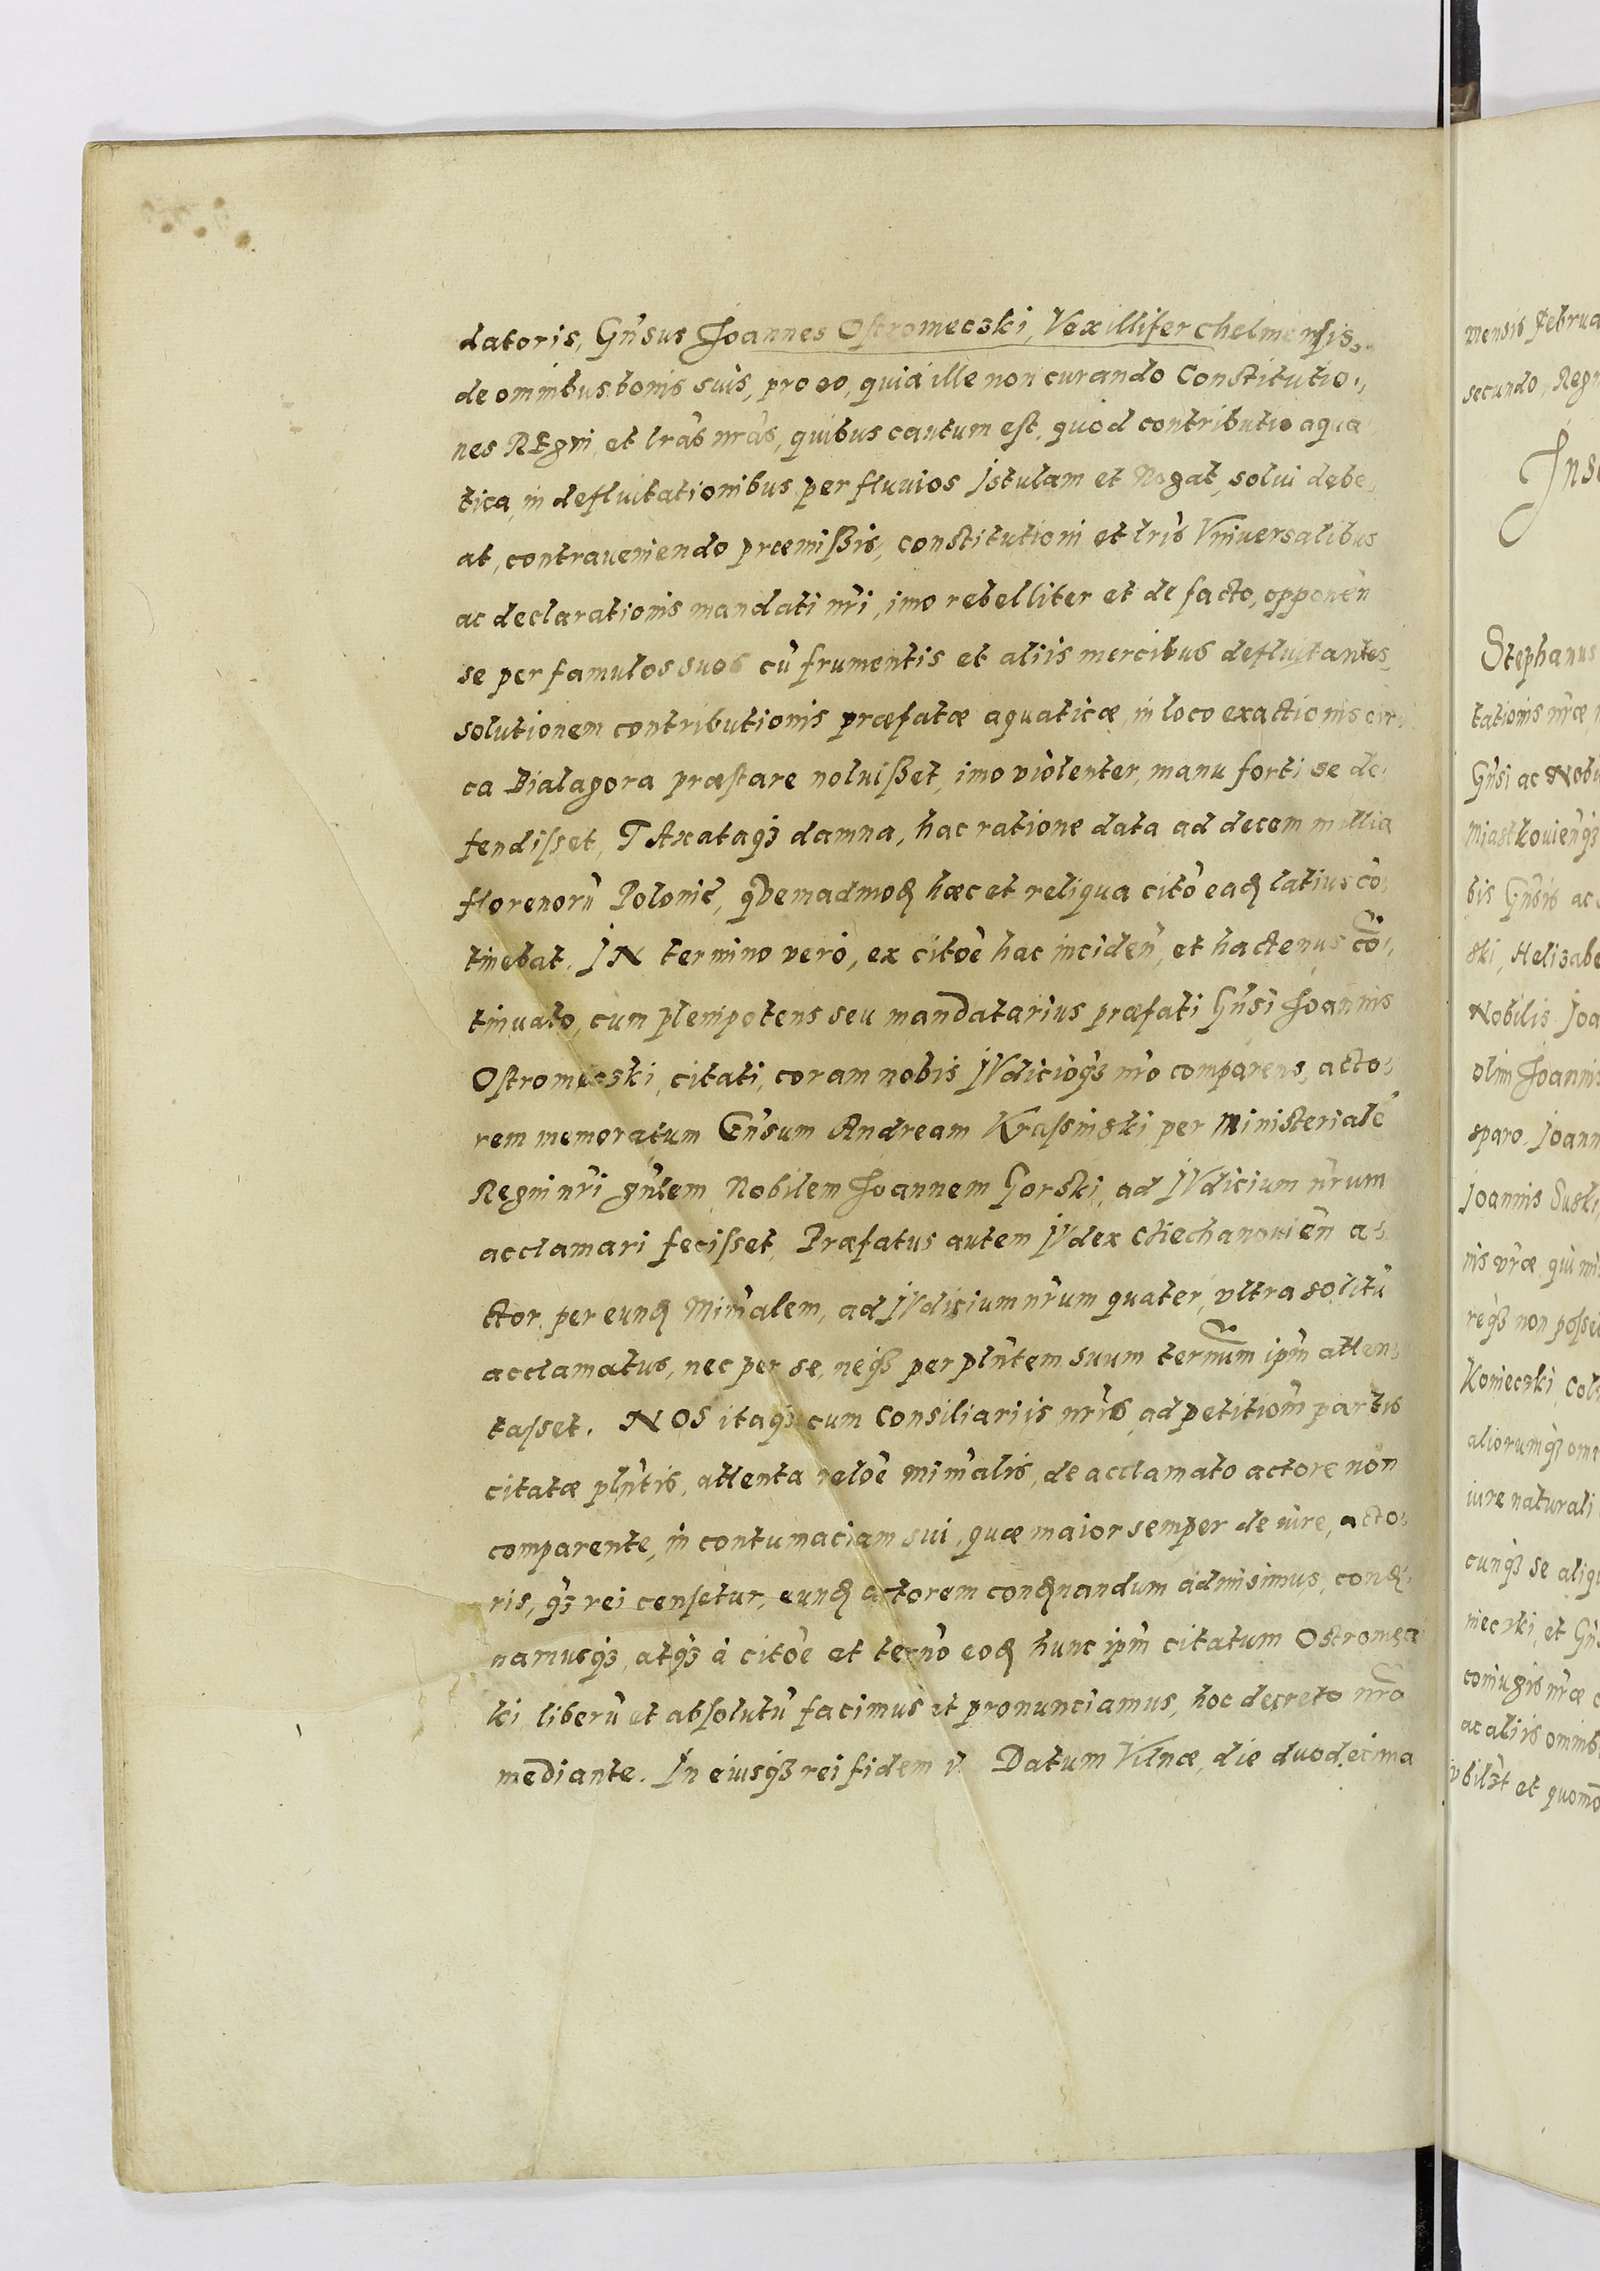 datoris, Gn̄sus Joannes Ostromeczki, Vexillifer chelmensis,
de omnibus bonis suis, pro eo, quia ille non curando Constitutio,,
nes REgni, et lrās nrās, quibus cautum est, quod contributio aqua
tica, in defluitationibus per fluvios Jstulam et Nogat, solui debe,
at, contraveniendo præmißis, constitutioni et lrīs Vniversalibus
ac declarationis mandati nrī, imo rebelliter et de facto, opponēn
se per famulos suos cū frumentis et aliis mercibus defluitantes
solutionem contributionis præfatæ aquaticæ, in loco exactionis cir,
ca Bialagora præstare noluißet, imo violenter, manu forti se de,
fendisset, TAxataqꝫ damna, hac ratione data ad decem millia
florenorū Polonic̄, qVemadmoꝺ hæc et reliqua citō eaꝺ latius cō,
tinebat. JN termino vero, ex citōe hac inciden̄, et hactenus cō,
tinuato, cum plenipotens seu mandatarius præfati Gn̄si Joannis
Ostromeczki, citati, coram nobis JVdicioqꝫ nrō comparens, acto,
rem memoratum Gn̄sum Andream Krassinski, per Ministerialē
Regni nrī gn̄lem, Nobilem Joannem Gorski, ad JVdicium nrūm
acclamari fecisset, Præfatus autem JVdex Chechanovien̄ a,
ctor, per eunꝺ Min̄alem, ad JVdicium nrūm quater, vltra solitū
acclamatus, nec per se, neqꝫ per pln̄tem suum termn̄um ipm̄ atten,
tasset. NOS itaqꝫ cum Consiliariis nrīs, ad petitiom̄ partis
citatæ pln̄tis, attenta relōe min̄alis, de acclamato actore non
comparente, in contumaciam sui, quæ maior semper de iure, acto,
ris, qꝫ rei censetur, eunꝺ actorem conꝺnandum admisimus, conꝺ,
namusqꝫ, atqꝫ à citōe et ternō eoꝺ hunc ipm̄ citatum Ostromec
ki liberū et absolutū facimus et pronunciamus, hoc decreto nrō
mediante. Jn eiusqꝫ rei fidem &. Datum Vilnæ, die duodecima
mensis Februa
secundo, Regn
Stephanus
tationis nrǣ
Gn̄si ac Nobi
Miastkovien̄qꝫ
bis Gn̄sis ac
ski, Helizabe
Nobilis Joa
olim Joannis
sparo, Joann
Joannis Suski
nis vrǣ, qui
reqꝫ non posse
Konieczki, Col
aliorumqꝫ om
iure naturali
cunqꝫ se aliqu
nieczki, et Gn̄
coniugis nrǣ
ac aliis omnib
vbilꝫt et quomo